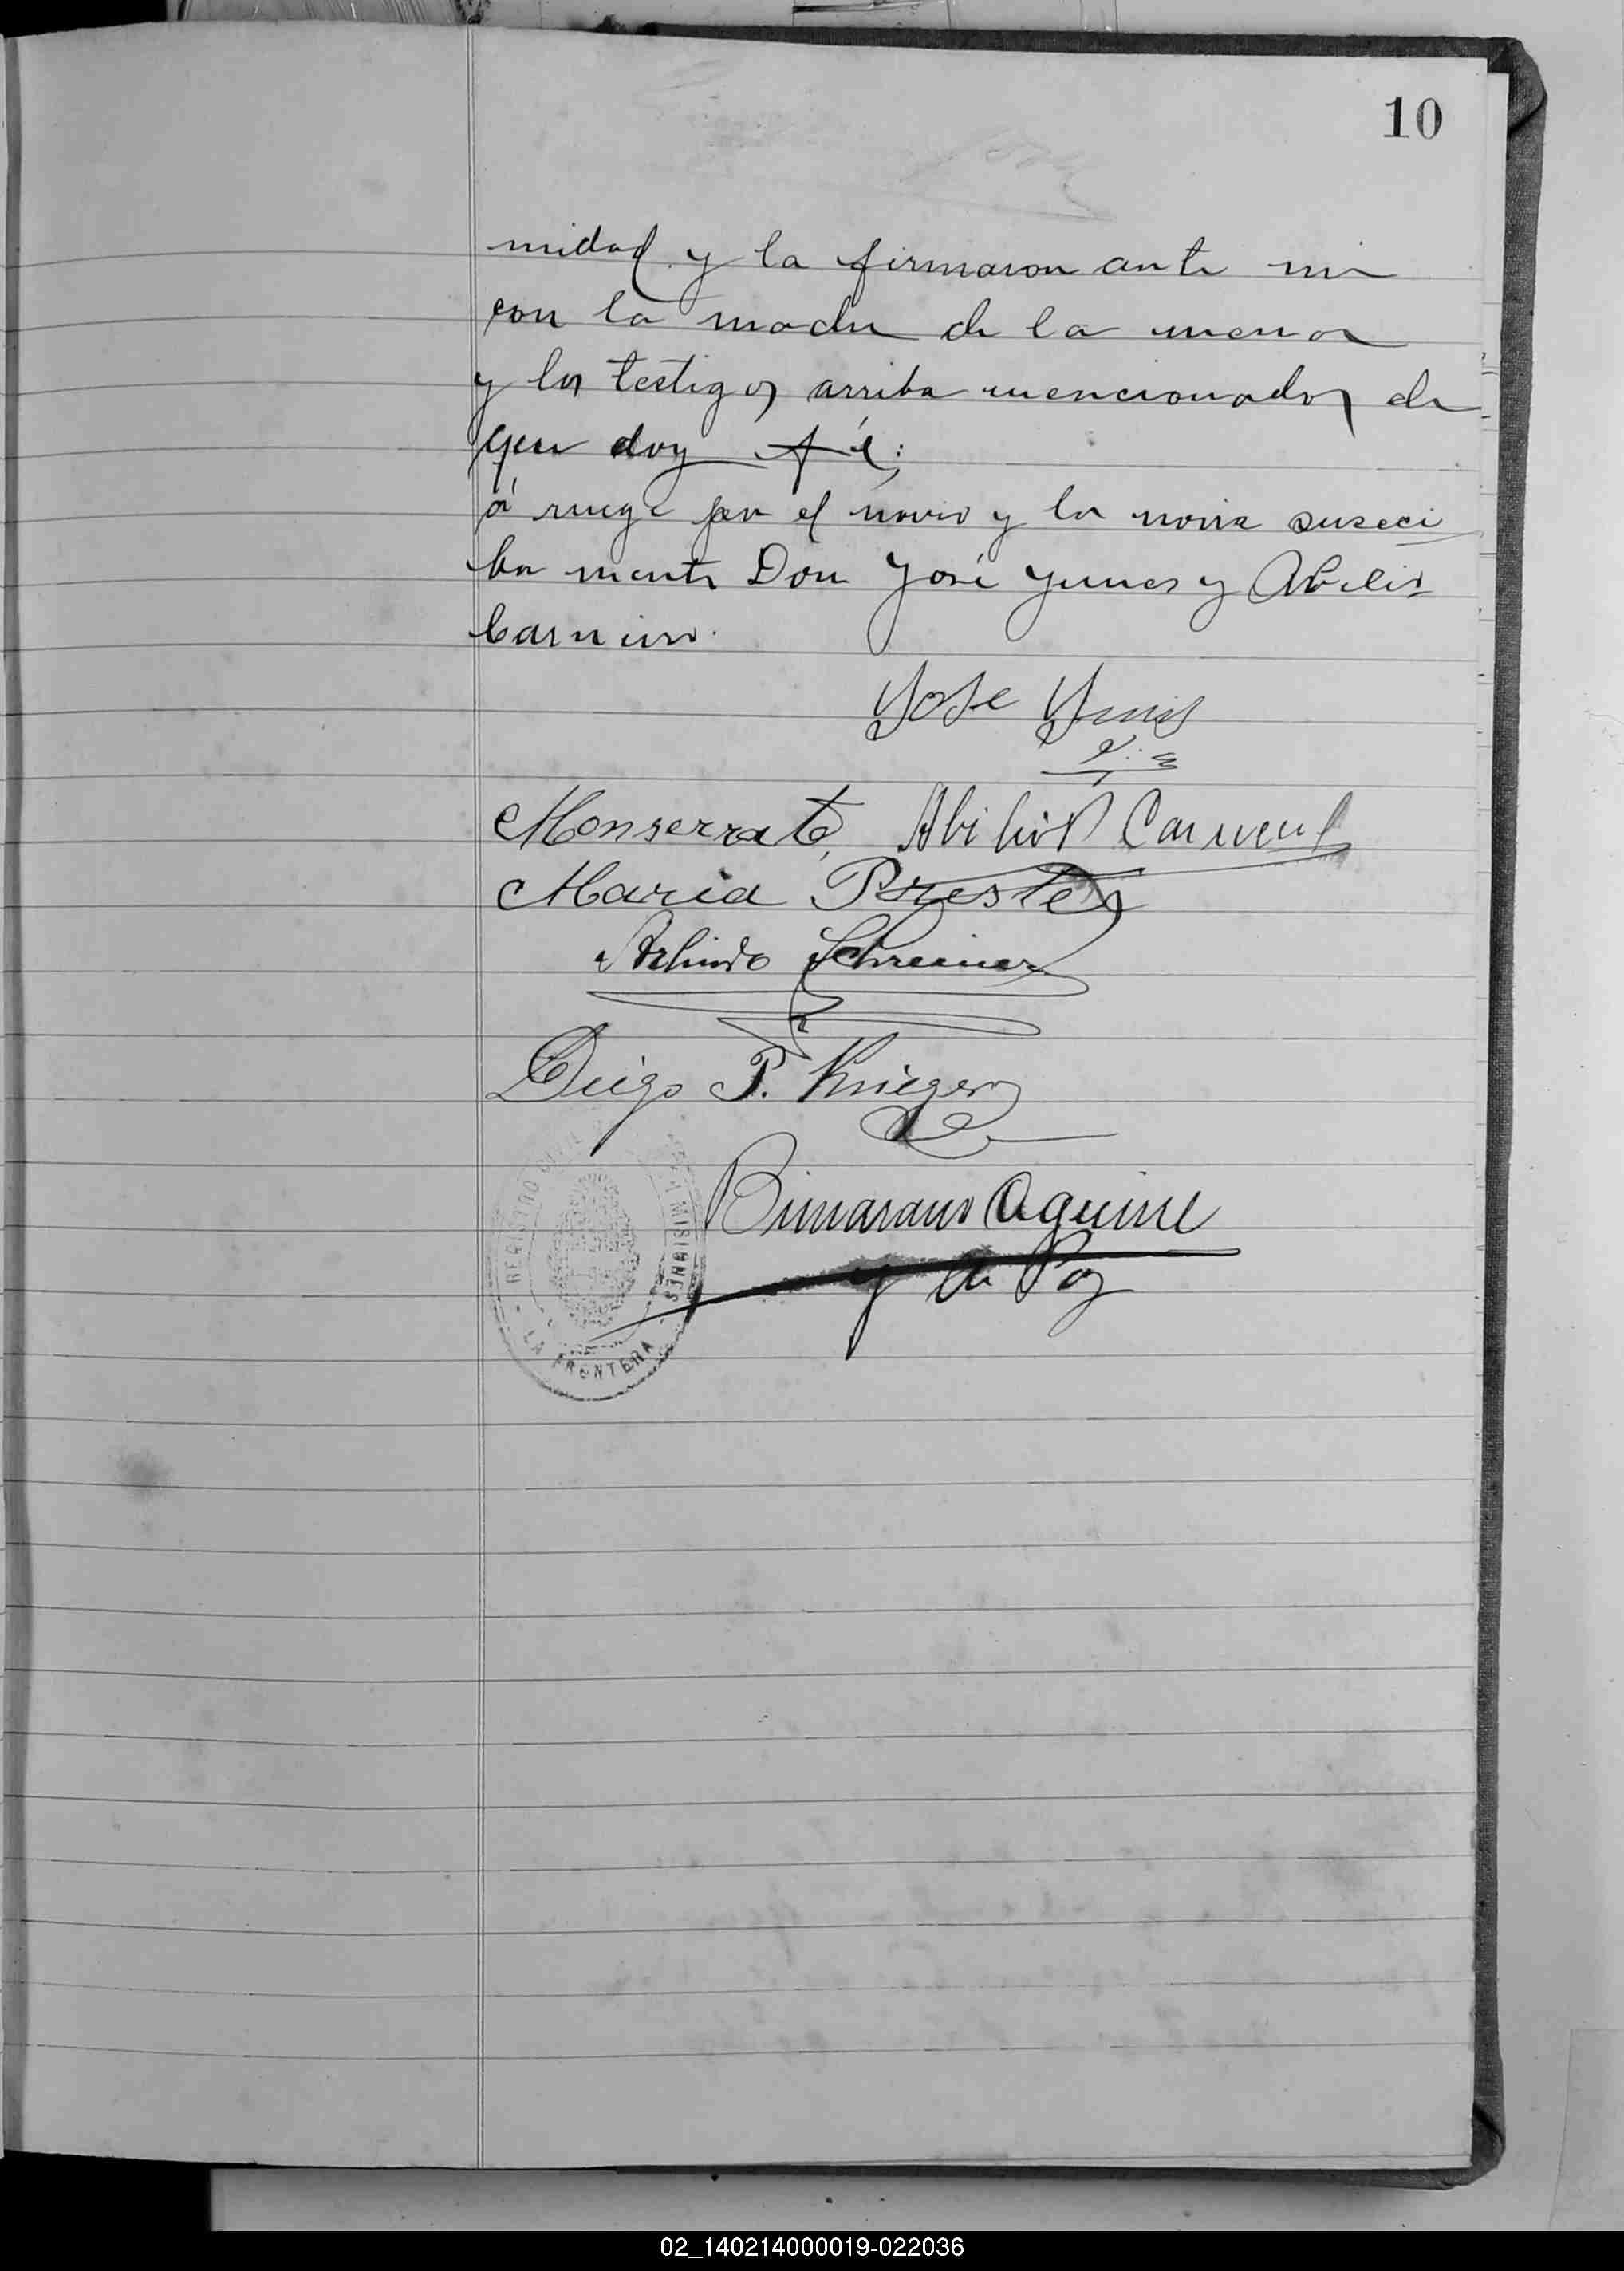 10
midad y la firmaron ante mi
con la madre de la menor
y los testigos arriba mencionados de
que doy fé;
á ruego por el novio y la novia suseci
ba mente Don José Yunes y Abilio
Carneiro.
Jose Yunis
Monserrate, Abilio Carneiro
Maria Prestes
Arlindo Schreiner
Diego P. Krieger
Bimarano Aguirre
y de Paz
REGISTRO CIVIL
MISIONES
LA FRONTERA
02_140214000019-022036